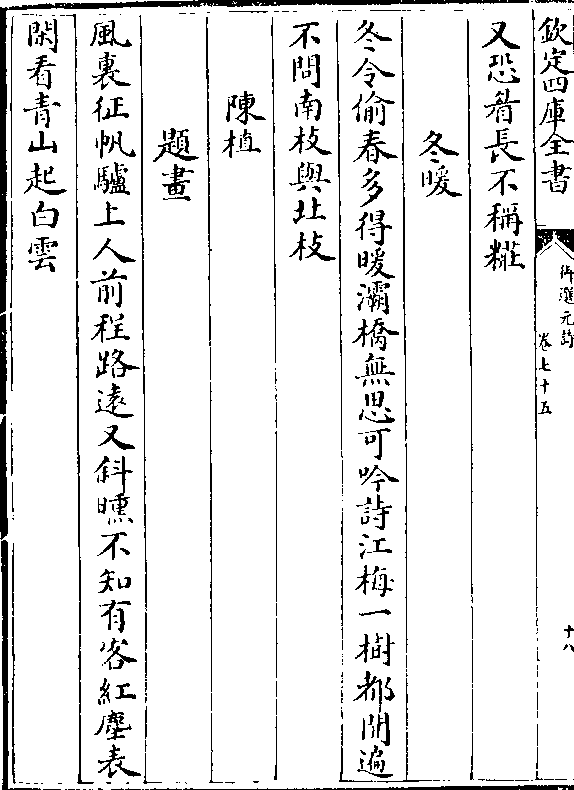 欽定四庫全書
御選元詩
卷七十五
十八
又恐眷長不稱糚
冬暖
冬令偷春多得暖灞橋無思可吟詩江梅一樹都開遍
不問南枝與北枝
陳植
題畫
風裏征帆驢上人前程路遠又斜曛不知有客紅塵表
閑看青山起白雲